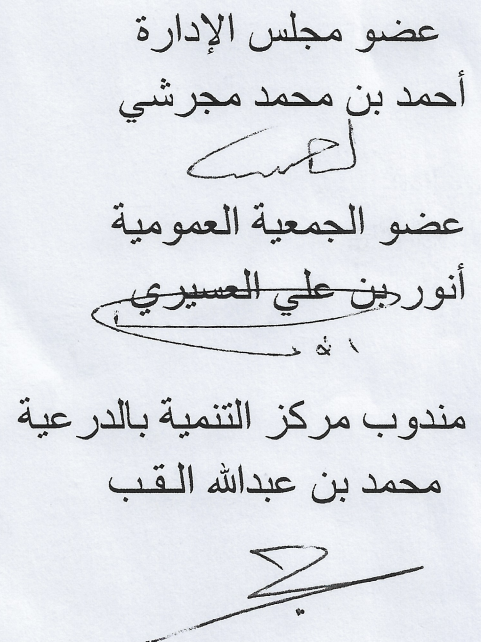 عضو مجلس الإدارة
أحمد بن محمد مجرشي
عضو الجمعية العمومية
أنور بن علي العسيري
مندوب مركز التنمية بالدرعية
محمد بن عبدالله القب